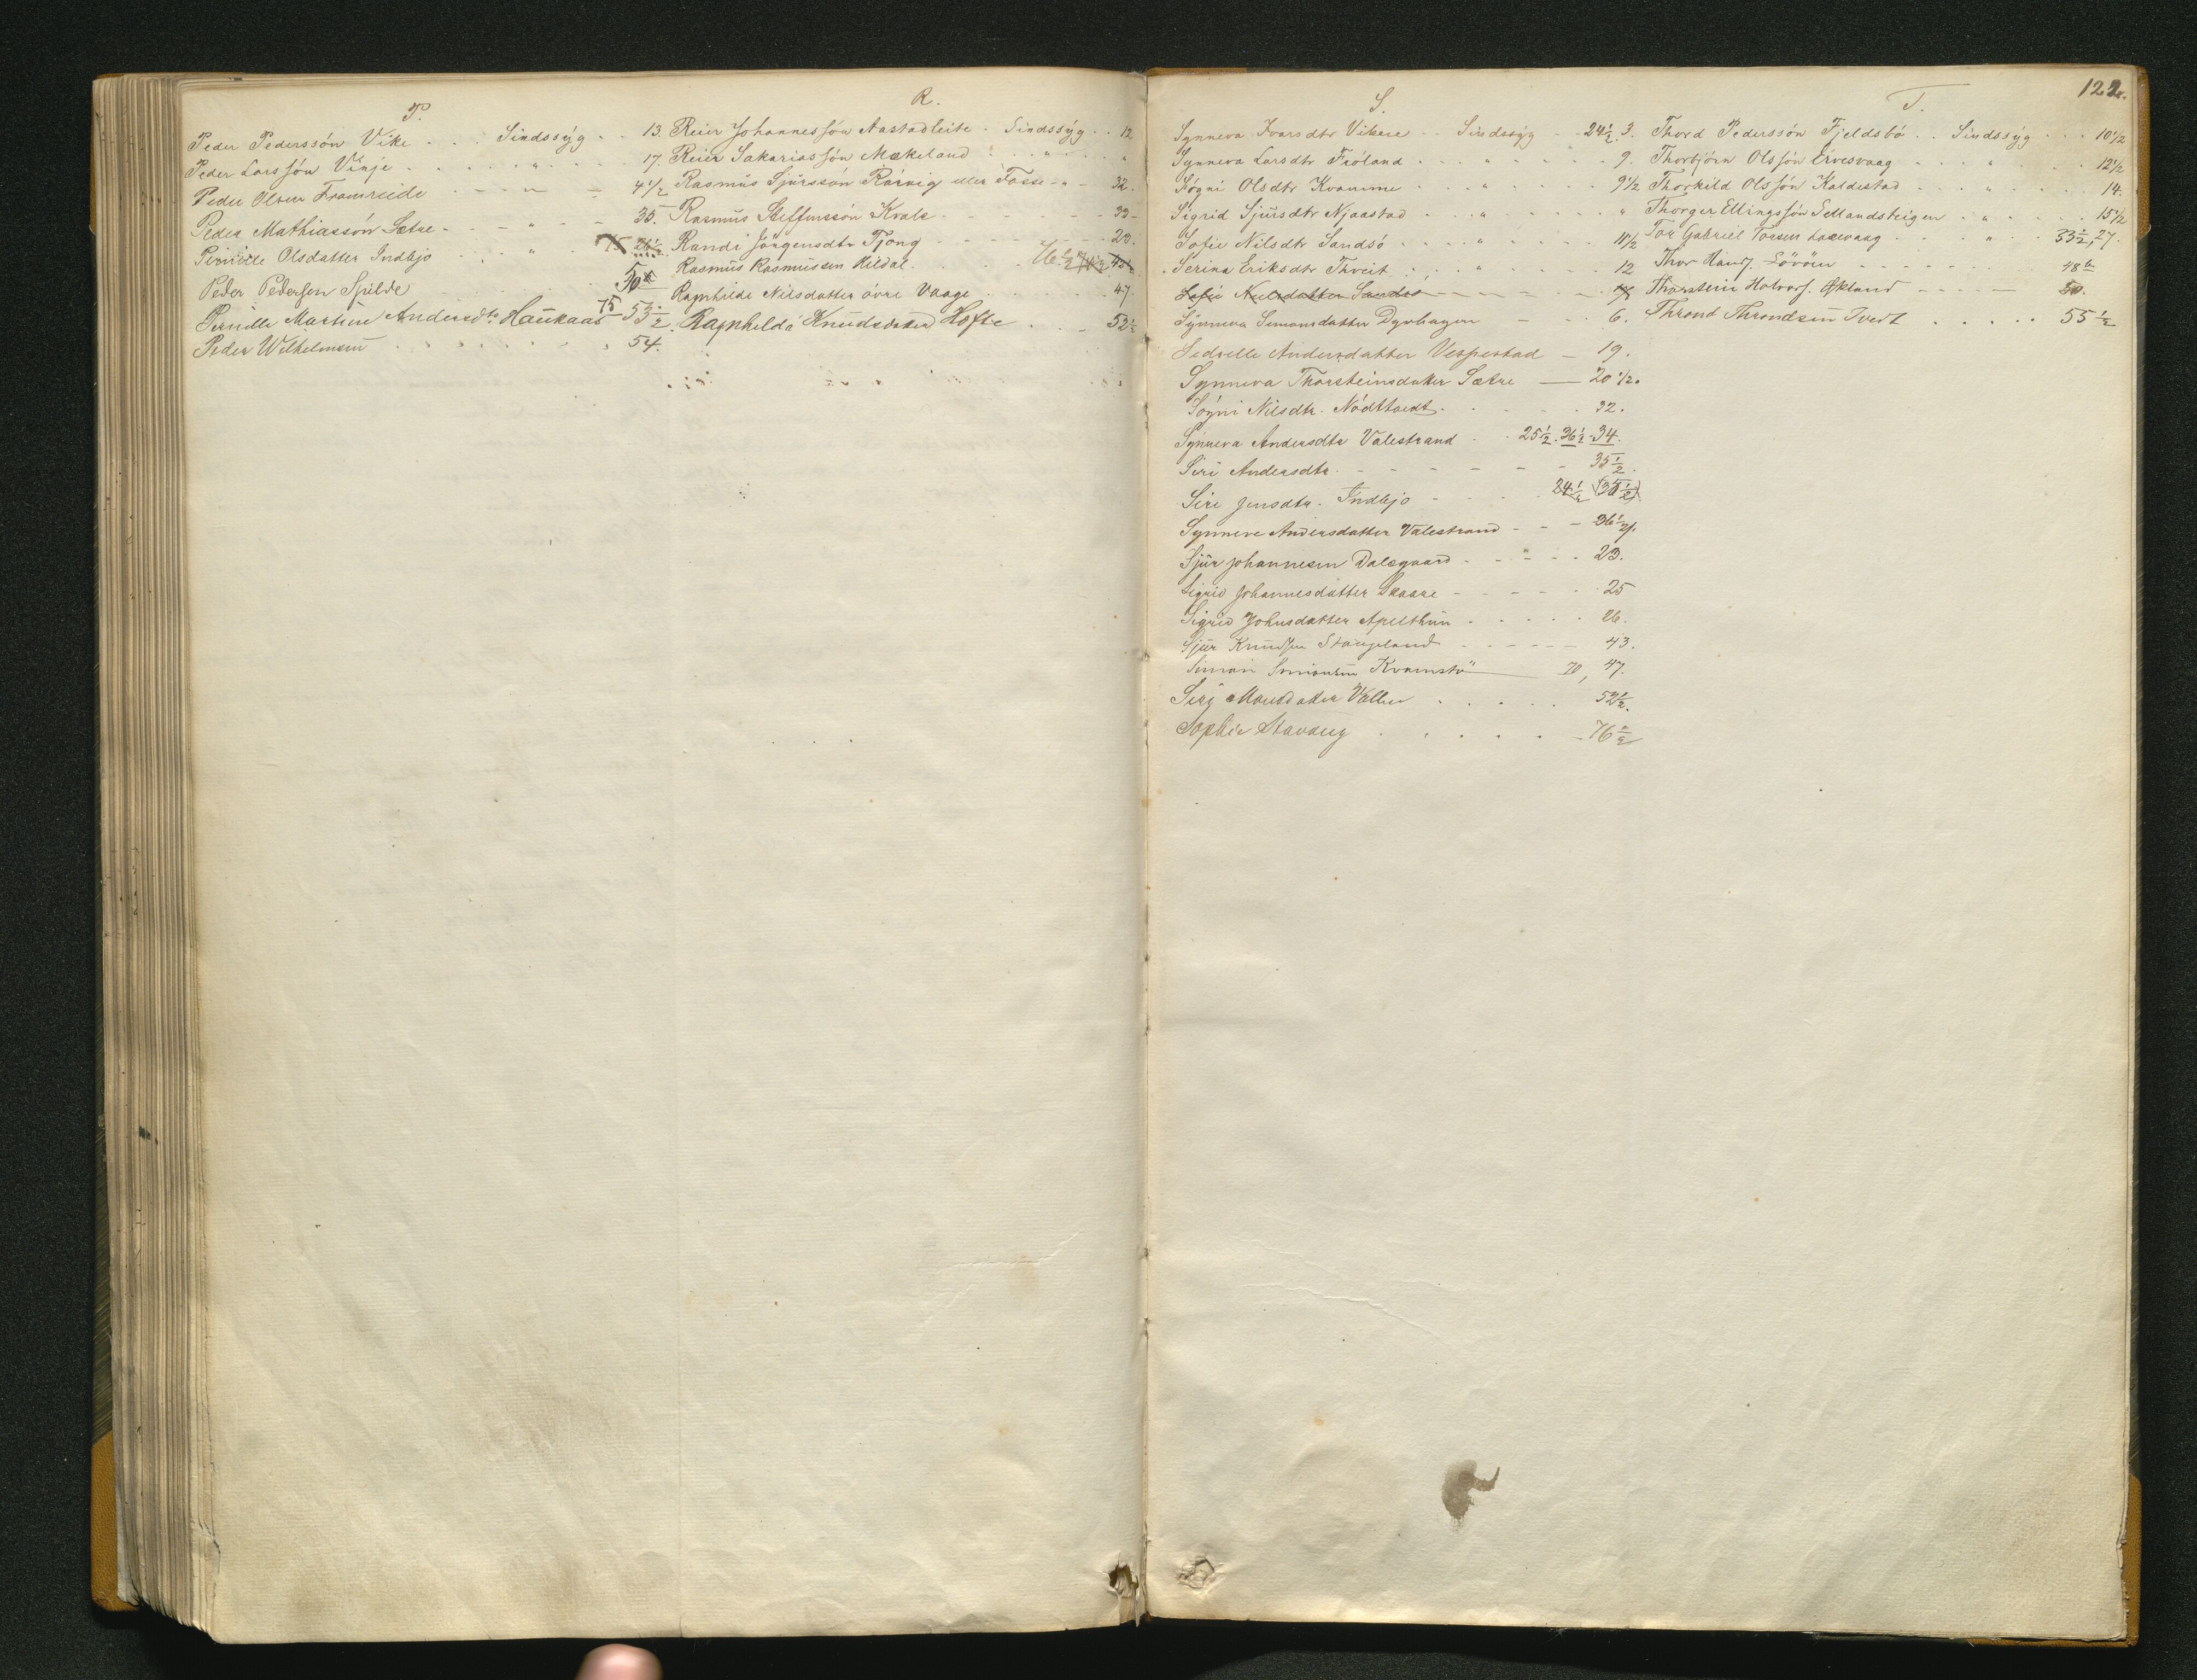 122.
P.
Peder Pederssón Vike . . . Sindssýg . . 13.
Peder Larssón Vinje . . . . " . . . . 17.
Peder Olsen Framreide - - - " - 4 1/2
Peder Mathiassón Sætre - - - " - - 35.
Pernille Olsdatter Indbjo . . . " 75 26 1/2
Peder Pedersen Spilde 50
Pernille Martine Andersdtr Haukaas 75 53 1/2
Peder Wilhelmsen . . . . . 54.
R.
Reier Johannessón Aastadleite . Sindssýg . . 12
Reier Sakariassón Mækeland . . . " . . . "
Rasmus Sjurssón Rórvig eller Fosse - " - 32.
Rasmus Steffenssón Kvale - - - - - 33-
Randi Jörgensdtr Tjong - - - - - 20.
Rasmus Rasmussen Hildal . . . 76 1/2 45 1/2
Ragnhilde Nilsdatter óvre Vaage . . . 47.
Ragnhilda Knudsdatter Hofte . . . 52 1/2
S.
Synneva Ivarsdtr Vikere . . Sindssýg . . 24 1/2. 3.
Synneva Larsdtr Fróland . . . " . . . 9.
Sógni Olsdtr Kvamme . . . " . . . 9 1/2
Sigrid Sjursdtr Njaastad . . . " . . . "
Sofie Nilsdtr Sandsó . . . . " . . . 11 1/2
Serina Eriksdtr Thveit . . . " . . . 12
Sofie Nielsdatter Sandsó
Synneva Simonsdatter Dyrhagen - - - 6.
Andersdatter Vespestad - 19.
Synneva Thorsteinsdatter Sætre - 20 1/2.
Sógni Nilsdtr. Nódttveidt . . . . 32.
Synneva Andersdtr Valestrand . . 25 1/2. 36 1/2. 34.
Siri Andersdtr. - - - - - - 35 1/2.
Siri Jensdtr. Indbjo - - - 24 1/2 (31 1/2)
Synneve Andersdatter Valestrand - - - 36 1/2.
Sjur Johannesen Dalegaard - - " - - 23.
Sigrid Johannesdatter Skaare - - - - - 25
Sigrid Johnsdatter Apelthun . . . . . 26.
Sjur Knudsen Stangeland - - - - - 43.
Simon Simonsen Kvamstö 70, 47.
Siri Monsdatter Valler . . . . . 52 1/2.
Sophie Stavang . . . . . . 76 1/2
T.
Thord Pederssón Fjeldsbó . . Sindssýg . . . 10 1/2
Thorbjórn Olssón Ervesvaag . . . " . . . 12 1/2
Thorkild Olssón Kaldestad . . . " . . . 14.
Thorger Ellingssón Sellandsteigen . " . . . . 15 1/2
Tor Gabriel Torsen Laxevaag . . . " . . 33 1/2, 27.
Thor Hansf. Lövöen - - - - - - - 48 1/2
Thorstein Halvorsf. Økland - - - - - 50.
Thrond Throndsen Tvedt . . . . . 55 1/2